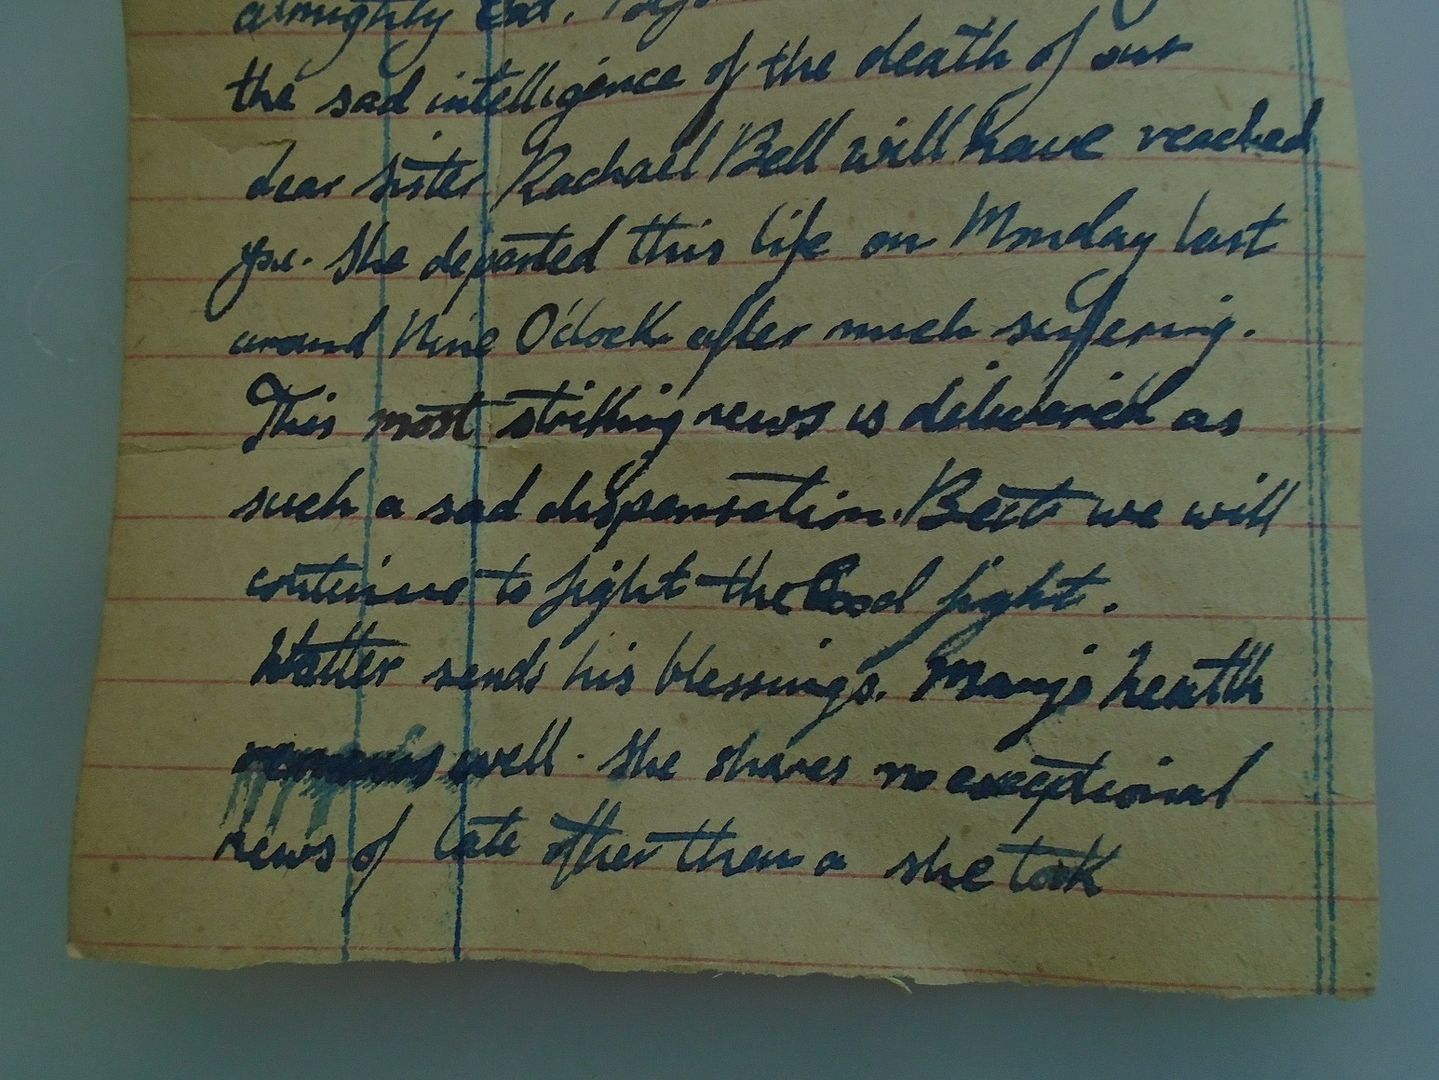 almighty
the sad intelligence of the death of our
dear sister Rachael Bell will have reached
you. She departed this life on Monday last
around Nine O'Clock after much suffering.
This most striking news is delivered as
such a sad dispensation. But we will
continue to fight the Good fight.
Walter sends his blessings. Marys health
remains well. She shares no exceptional
news of late other than a she took